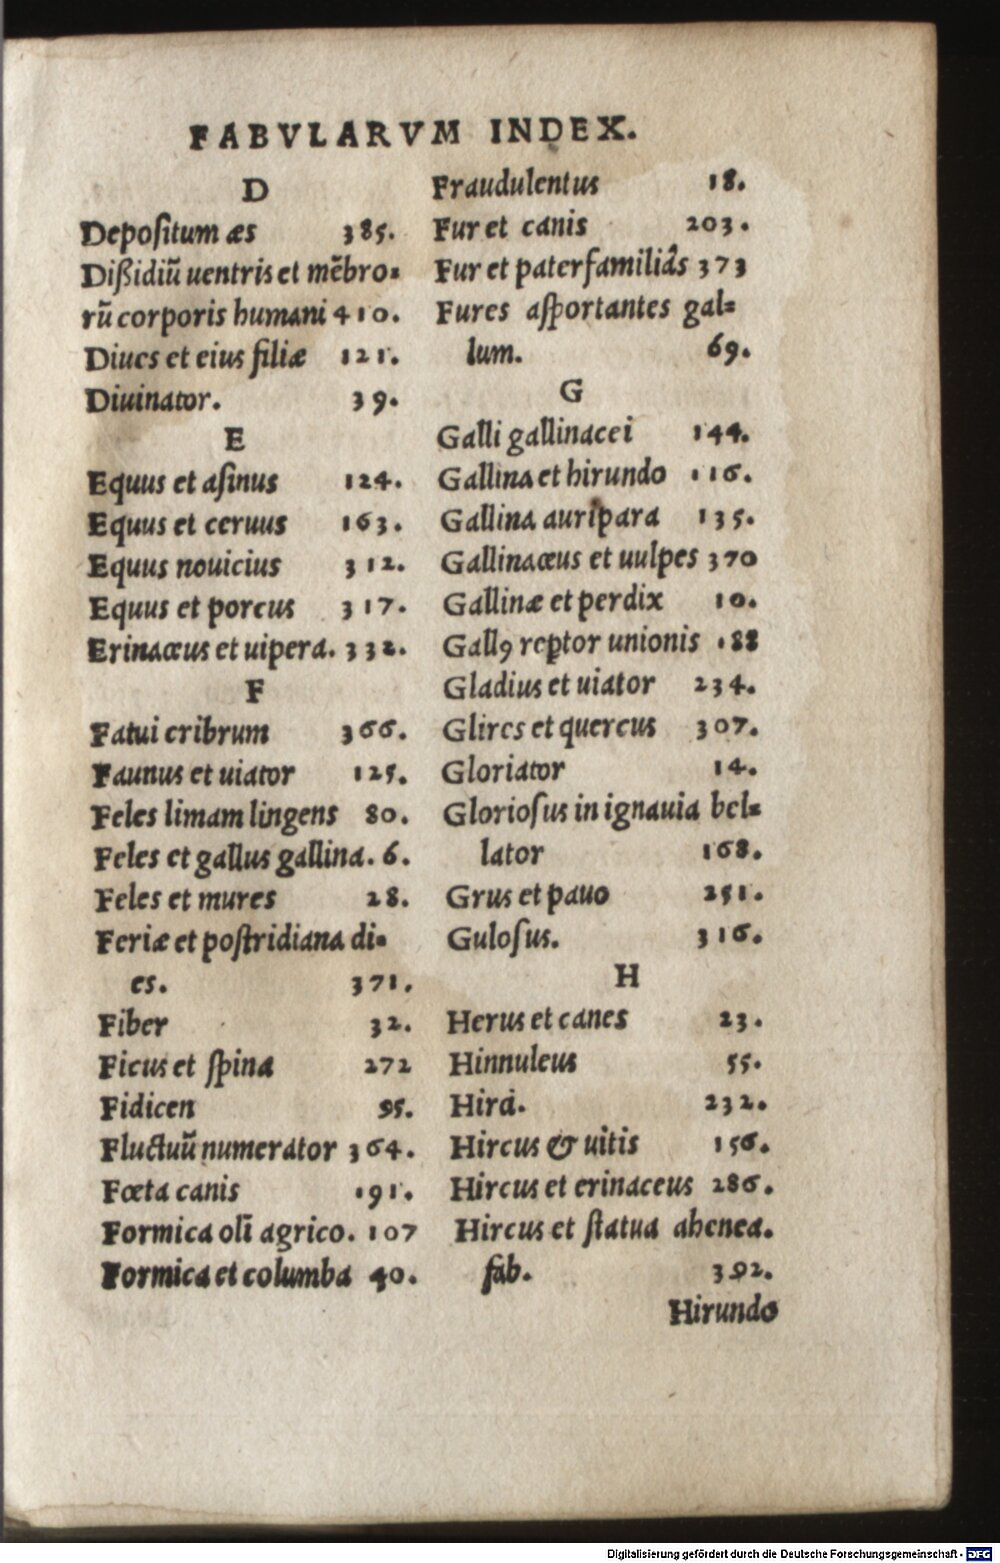 FABVLARVM INDEX.
D
Depositum æs 385.
Dißidiũ uentris et mẽbro=
rũ corporis humani 410.
Diues et eius filiæ 121.
Diuinator. 39.
E
Equus et asinus 124.
Equus et ceruus 163.
Equus nouicius 312.
Equus et porcus 317.
Erinaceus et uipera. 332.
F
Fatui cribrum 366.
Faunus et uiator 125.
Feles limam lingens 80.
Feles et gallus gallina. 6.
Feles et mures 28.
Feriæ et postridiana di=
es. 371.
Fiber 32.
Ficus et spina 272
Fidicen 95.
Fluctuũ numerator 364.
Fœta canis 191.
Formica olĩ agrico. 107
Formica et columba 40.
Fraudulentus 18.
Fur et canis 203.
Fur et paterfamiliâs 373
Fures asportantes gal=
lum. 69.
G
Galli gallinacei 144.
Gallina et hirundo 116.
Gallina auripara 135.
Gallinaceus et uulpes 370
Gallinæ et perdix 10.
Gallꝰ reptor unionis 188
Gladius et uiator 234.
Glires et quercus 307.
Gloriator 14.
Gloriosus in ignauia bel=
lator 168.
Grus et pauo 251.
Gulosus. 316.
H
Herus et canes 23.
Hinnuleus 55.
Hira. 232.
Hircus & uitis 156.
Hircus et erinaceus 286.
Hircus et statua ahenea.
fab. 392.
Hirundo
Digitalisierung gefördert durch die Deutsche Forschungsgemeinschaft - DFG